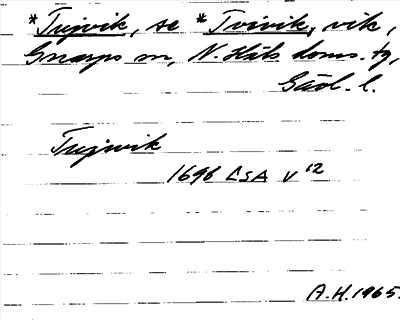 *Trijvik, se *Tvivik, vik,
Gnarps sn, N. Häls doms. tg,
Gävl. l.
Trijwik
1696 LSA V 12
A.H. 1965.